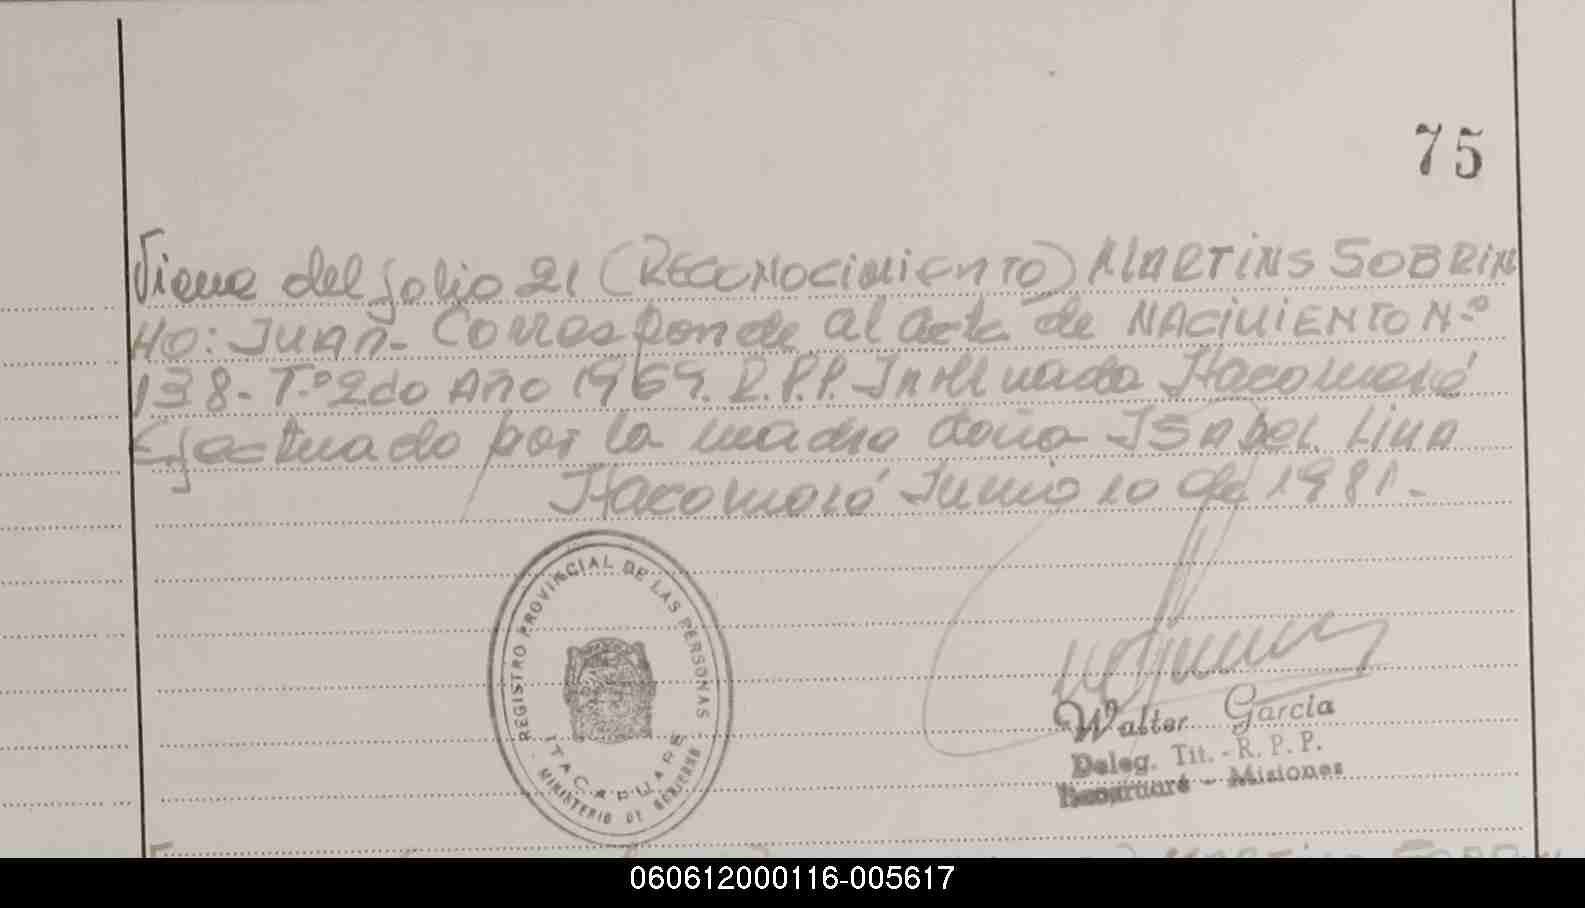 75
Viene del folio 21 (RECONOCIMIENTO) MARTINS SOBRIN
HO: JUAN- Corresponde al acta de NACIMIENTO N.º
138- T.º 2do Año 1969. R.P.P. Itacaruaré
Efectuado por la madre doña ISABEL LIMA
Itacaruaré Junio 10 de 1981.-
REGISTRO PROVINCIAL DE LAS PERSONAS
ITACARUARE
MINISTERIO DE GOBIERNO
Walter Garcia
Deleg. Tit. - R. P. P.
Itacaruaré - Misiones
MARTINS SOBRIN
060612000116-005617